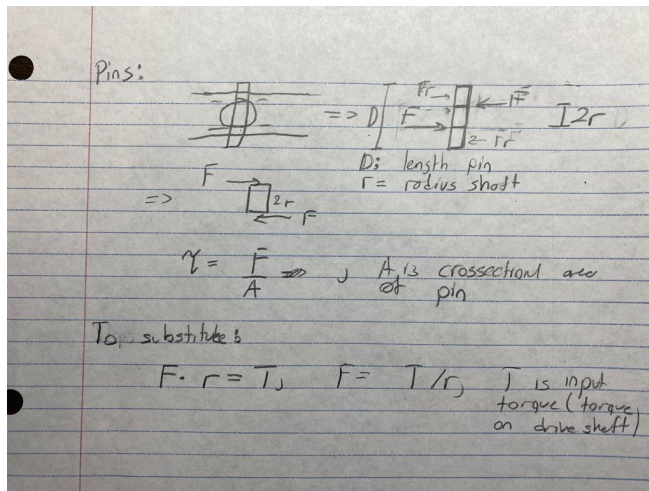 Pins:
=> D F Fr F Fr I2r
D: length pin
r = radius shaft
=> F 2r F
τ = F/A , A is crossectional area
of pin
To substitute:
F · r = T, F = T/r, T is input
torque (torque
on drive shaft)